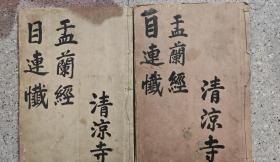 盂蘭經
目連懺
清凉寺
盂蘭經
目連懺
清凉寺